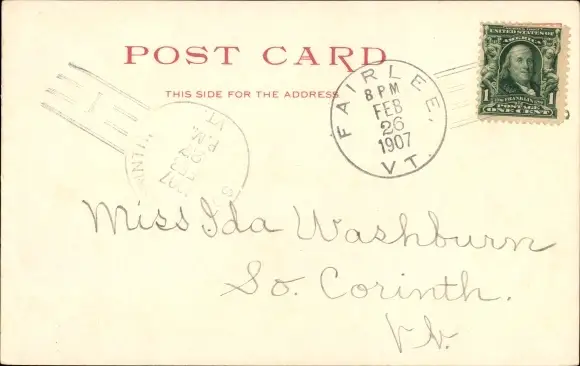 POST CARD
THIS SIDE FOR THE ADDRESS
FAIRLEE, VT.
8 PM
FEB
26
1907
UNITED STATES OF AMERICA
1 1
POSTAGE
ONE CENT
1
VT
P.M.
1907
Miss Ida Washburn
So. Corinth.
Vt.